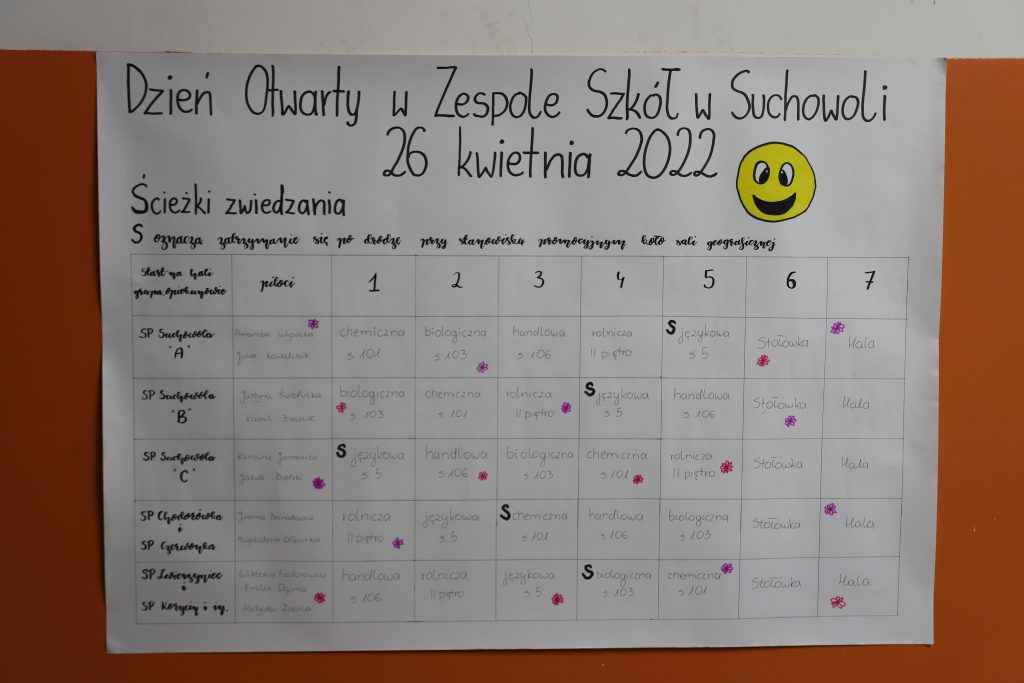 Dzień Otwarty w Zespole Szkół w Suchowoli
26 kwietnia 2022
Ścieżki zwiedzania
S oznacza zatrzymanie się po drodze przy stanowisku promocyjnym koło sali geograficznej
Start na hali
grupa, opiekunowie
piloci
1 2 3 4 5 6 7
SP Suchowola
"A"
Amanda Wysocka
Julia Kowalczuk
chemiczna
s. 101
biologiczna
s. 103
handlowa
s. 106
rolnicza
II piętro
S językowa
s. 5
Stołówka
Hala
SP Suchowola
"B"
Justyna
Kamil
biologiczna
s. 103
chemiczna
s. 101
rolnicza
II piętro
S językowa
s. 5
handlowa
s. 106
Stołówka
Hala
SP Suchowola
"C"
Karolina
Jakub
S językowa
s. 5
handlowa
s. 106
biologiczna
s. 103
chemiczna
s. 101
rolnicza
II piętro
Stołówka
Hala
SP Chodorówka
i
SP Czerwonka
Joanna
Magdalena
rolnicza
II piętro
językowa
s. 5
S chemiczna
s. 101
handlowa
s. 106
biologiczna
s. 103
Stołówka
Hala
SP Zwierzyniec
i
SP Korycin i in.
Wiktoria Fiedorowicz
Emilia
Matylda
handlowa
s. 106
rolnicza
II piętro
językowa
s. 5
S biologiczna
s. 103
chemiczna
s. 101
Stołówka
Hala